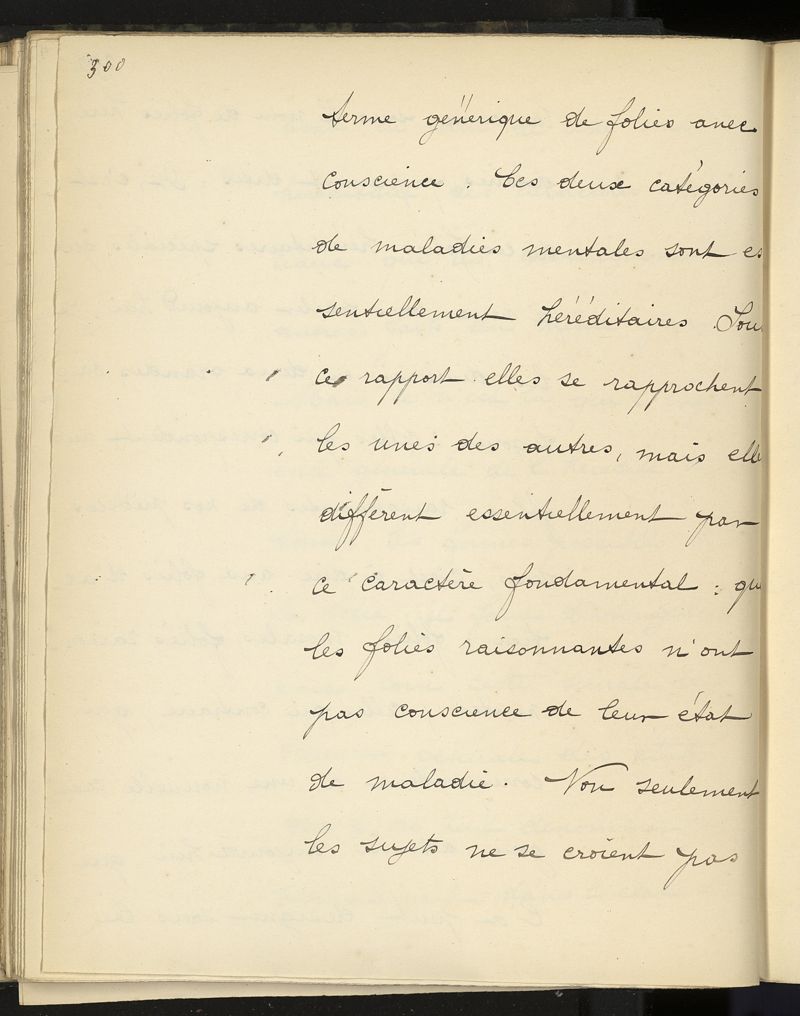 300
terme générique de folies avec
conscience. Ces deux catégories
de maladies mentales sont es
sentiellement héréditaires. Sou
ce rapport elles se rapprochent
les unes des autres, mais elle
diffèrent essentiellement par
ce caractère fondamental : qu
les folies raisonnantes n'ont
pas conscience de leur état
de maladie. Non seulement
les sujets ne se croient pas